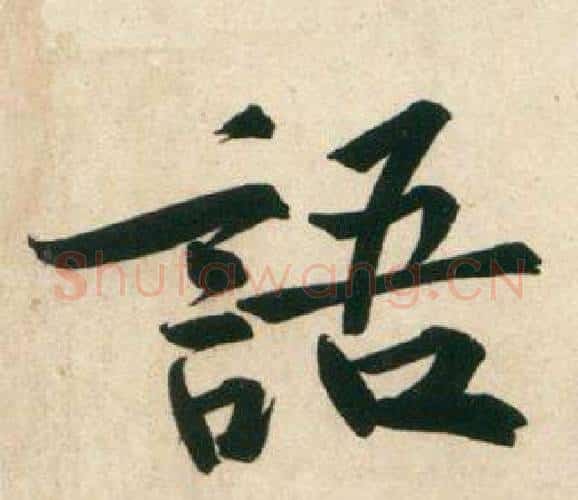 語
Shufawang.CN